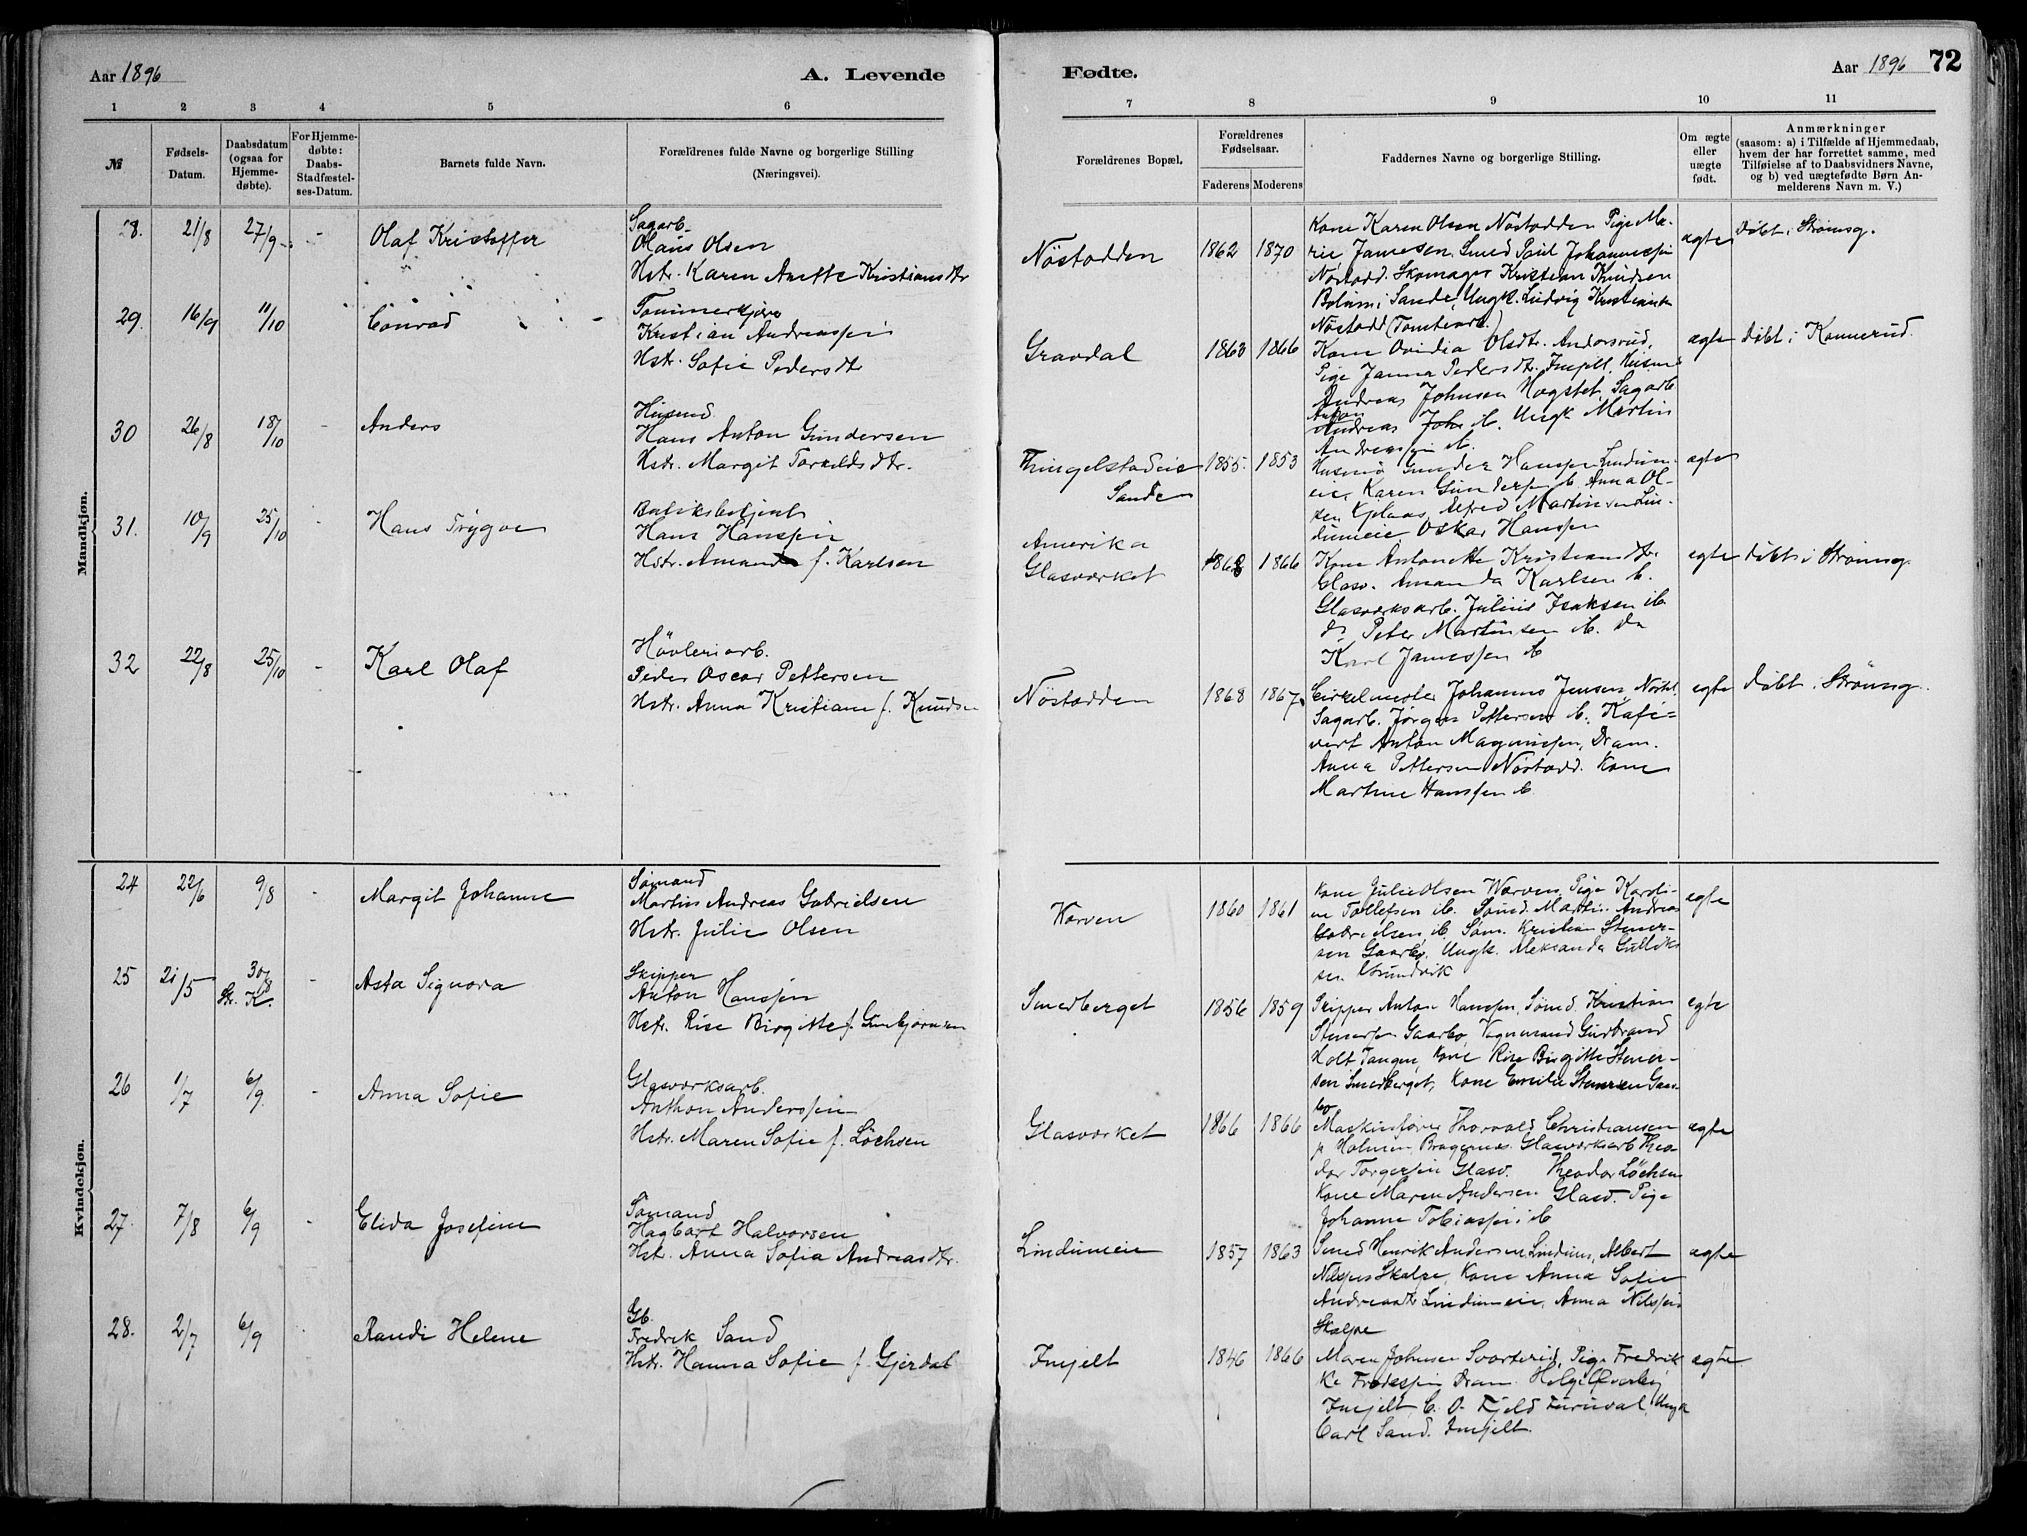 Aar 1896
A. Levende
Fødte.
Aar 1896
72
1 2 3 4 5 6 7 8 9 10 11
№
Fødsels-
Datum.
Daabsdatum
(ogsaa for
Hjemme-
døbte).
For Hjemme-
døbte:
Daabs-
Stadfæstel-
ses-Datum.
Barnets fulde Navn.
Forældrenes fulde Navne og borgerlige Stilling
(Næringsvei).
Forældrenes Bopæl.
Forældrenes
Fødselsaar.
Faderens Moderens
Faddernes Navne og borgerlige Stilling.
Om ægte
eller
uægte
født.
Anmærkninger
(saasom: a) i Tilfælde af Hjemmedaab,
hvem der har forrettet samme, med
Tilføielse af to Daabsvidners Navne,
og b) ved uægtefødte Børn An-
melderens Navn m. V.)
Mandkjøn.
28. 21/8 27/9 - Olaf Kristoffer
Sagarb.
Olaus Olsen
Hstr. Karen Anette Kristiansdtr
Nöstodden 1862 1870
Kone Karen Olsen Nöstodden Pige Ma-
rie Jamesen, Smed Paul Johannessen
Nöstodd. Skomager Kristian Knudsen
Bolum i Sande, Ungk. Ludvig Kristiansen
Nöstodd (Tomtearb.)
ægte Döbt i Strömsg.
29. 16/9 11/10 Conrad
Tømmerkjører
Kristian Andreassen
Hstr. Sofie Pedersdtr
Gravdal 1863 1866
Kone Ovidia Olsdtr. Andorsrud,
Pige Janna Pedersdtr. Imjelt, Husm
Andreas Johnsen Hogstet, Sagarb
Anton
Andreas Joh ib. Ungk Martin
Andreassen ib.
ægte döbt i Konnerud.
30 26/8 18/10 - Anders
Husmd.
Hans Anton Gundersen
Hstr. Margit Torkildsdtr.
Thingelstadeie
Sande
1855. 1853
Husmd Gunder Hanssen Lindum-
eie, Karen Gundersen ib. Anna Ol-
sen Oplaas, Alfred Martinsen Lin-
dumeie Oskar Hanssen
ægte
31. 10/9 25/10 - Hans Trygve
Butiksbetjent
Hans Hanssen
Hstr. Amanda f. Karlsen
Amerika
Glasværket
1868 1866
Kone Antonette Kristiansdtr
Glasv. Amanda Karlsen ib.
Glasværksarb. Julius Isaksen ib.
do Peter Martinsen ib. Do
Karl Jamessen ib
egte döbt i Strömsg.
32 22/8 25/10 - Karl Olaf
Hövleriarb.
Peder Oscar Pettersen
Hstr. Anna Kristiane f. Knudsen
Nöstodden 1868 1867
Cirkelmester Johannes Jensen, Nöstd.
Sagarb. Jörgen Pettersen ib. Kafe-
vert Anton Magnussen, Dram.
Anna Pettersen Nöstodd. Kone
Martine Hanssen ib
egte döbt i Strömsg.
Kvindekjøn.
24 22/6 9/8 - Margit Johanne
Sømand
Martin Andreas Gabrielsen
Hstr. Julie Olsen
Værven 1860 1861
Kone Julie Olsen Værven, Pige Karoli-
ne Tollefsen ib. Sömd. Martin Andreas
Gabrielsen ib Söm. Kristian Stener-
sen Gaarbo, Ungk. Aleksanda Gulliks
sen Grundvik
egte
25 21/5 30/8 - Asta Signora
Str. K.
Skipper
Anton Hanssen
Hstr. Rise Birgitte f. Gunbjörnsen
Smedberget 1856 1859
Skipper Anton Hanssen, Sömd Kristian
Stenersen Gaarbo, Vognmand Gudbrand
Holt Tangen, Kone Rise Birgitte Stener-
sen Smedberget, Kone Emilie Stenersen Gaar-
bo
egte
26 1/7 6/9 - Anna Sofie
Glasværksarb.
Anthon Anderssen
Hstr. Maren Sofie f. Löchsen
Glasværket 1866 1866
Maskinfører Thorvald Christiansen
p Holmen, Bragernes. Glasværksarb Theo-
dor Torgersen Glasv. Theodor Löchsen
Kone Maren Andersen Glasv. Pige
Johanne Tobiassen ib
ægte
27. 7/8 6/9 - Elida Josefine
Sömand
Hagbart Halvorsen
Hst. Anna Sofia Andreasdtr.
Lindumeie 1857 1863
Smed Henrik Andersen Lindum, Albert
Nilssen Skalpe, Kone Anna Sofie
Andreasdtr Lindumeie, Anna Nilssen
Skalpe
ægte
28. 2/7 6/9 Randi Helene
Gb.
Fredrik Sand
Hstr. Hanna Sofie f. Gjerdal
Imjelt 1846 1866
Maren Johnsen Svarterud, Pige Fredrik
ke Fredessen Dram. Helge Överby
Imjelt, C. O. Fjeld Furuval, Ungk
Carl Sand. Imjelt.
ægte